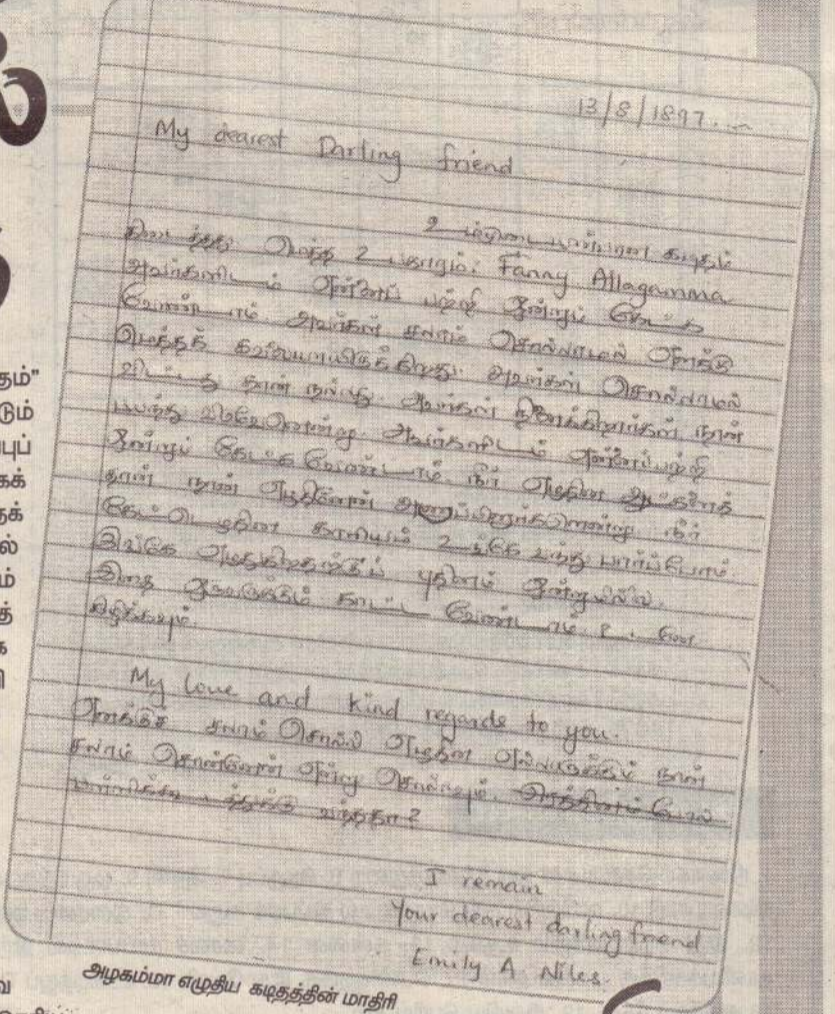 தம்"
டும்
ப்புப்
கக்
தக்
ல்
ம்
த்
க
13/8/1897.
My dearest Darling friend
உம்முடைய அன்பான கடிதம்
கிடைத்தது மெத்த உபகாரம். Fanny Allagamma
அவர்களிடம் என்னைப் பற்றி ஒன்றும் கேட்க
வேண்டாம். அவர்கள் சலாம் சொல்லாமல் எனக்கு
மெத்தக் கவலையாயிருக்கிறது. அவர்கள் சொல்லாமல்
விட்டது தான் நல்லது. அவர்கள் நினைக்கிறார்கள் நான்
பயந்து அவர்களிடம் என்னைப்பற்றி
ஒன்றும் கேட்க வேண்டாம். நீர் எழுதின
தான் நான் எழுதினேன் நீர்
கேட்டெழுதின காரியம் உங்கே வந்து பார்ப்போம்.
இங்கே எழுதுகிறதற்குப் புதினம் ஒன்றுமில்லை.
இதை ஒருவருக்கும் காட்ட வேண்டாம்.
கிழிக்கவும்.
My love and kind regards to you.
எனக்குச் சலாம் சொல்லி எழுதின எல்லாருக்கும் நான்
சலாம் சொன்னேன் என்று சொல்லவும்.
வந்ததா?
I remain
Your dearest darling friend
Emily A Niles.
அழகம்மா எழுதிய கடிதத்தின் மாதிரி